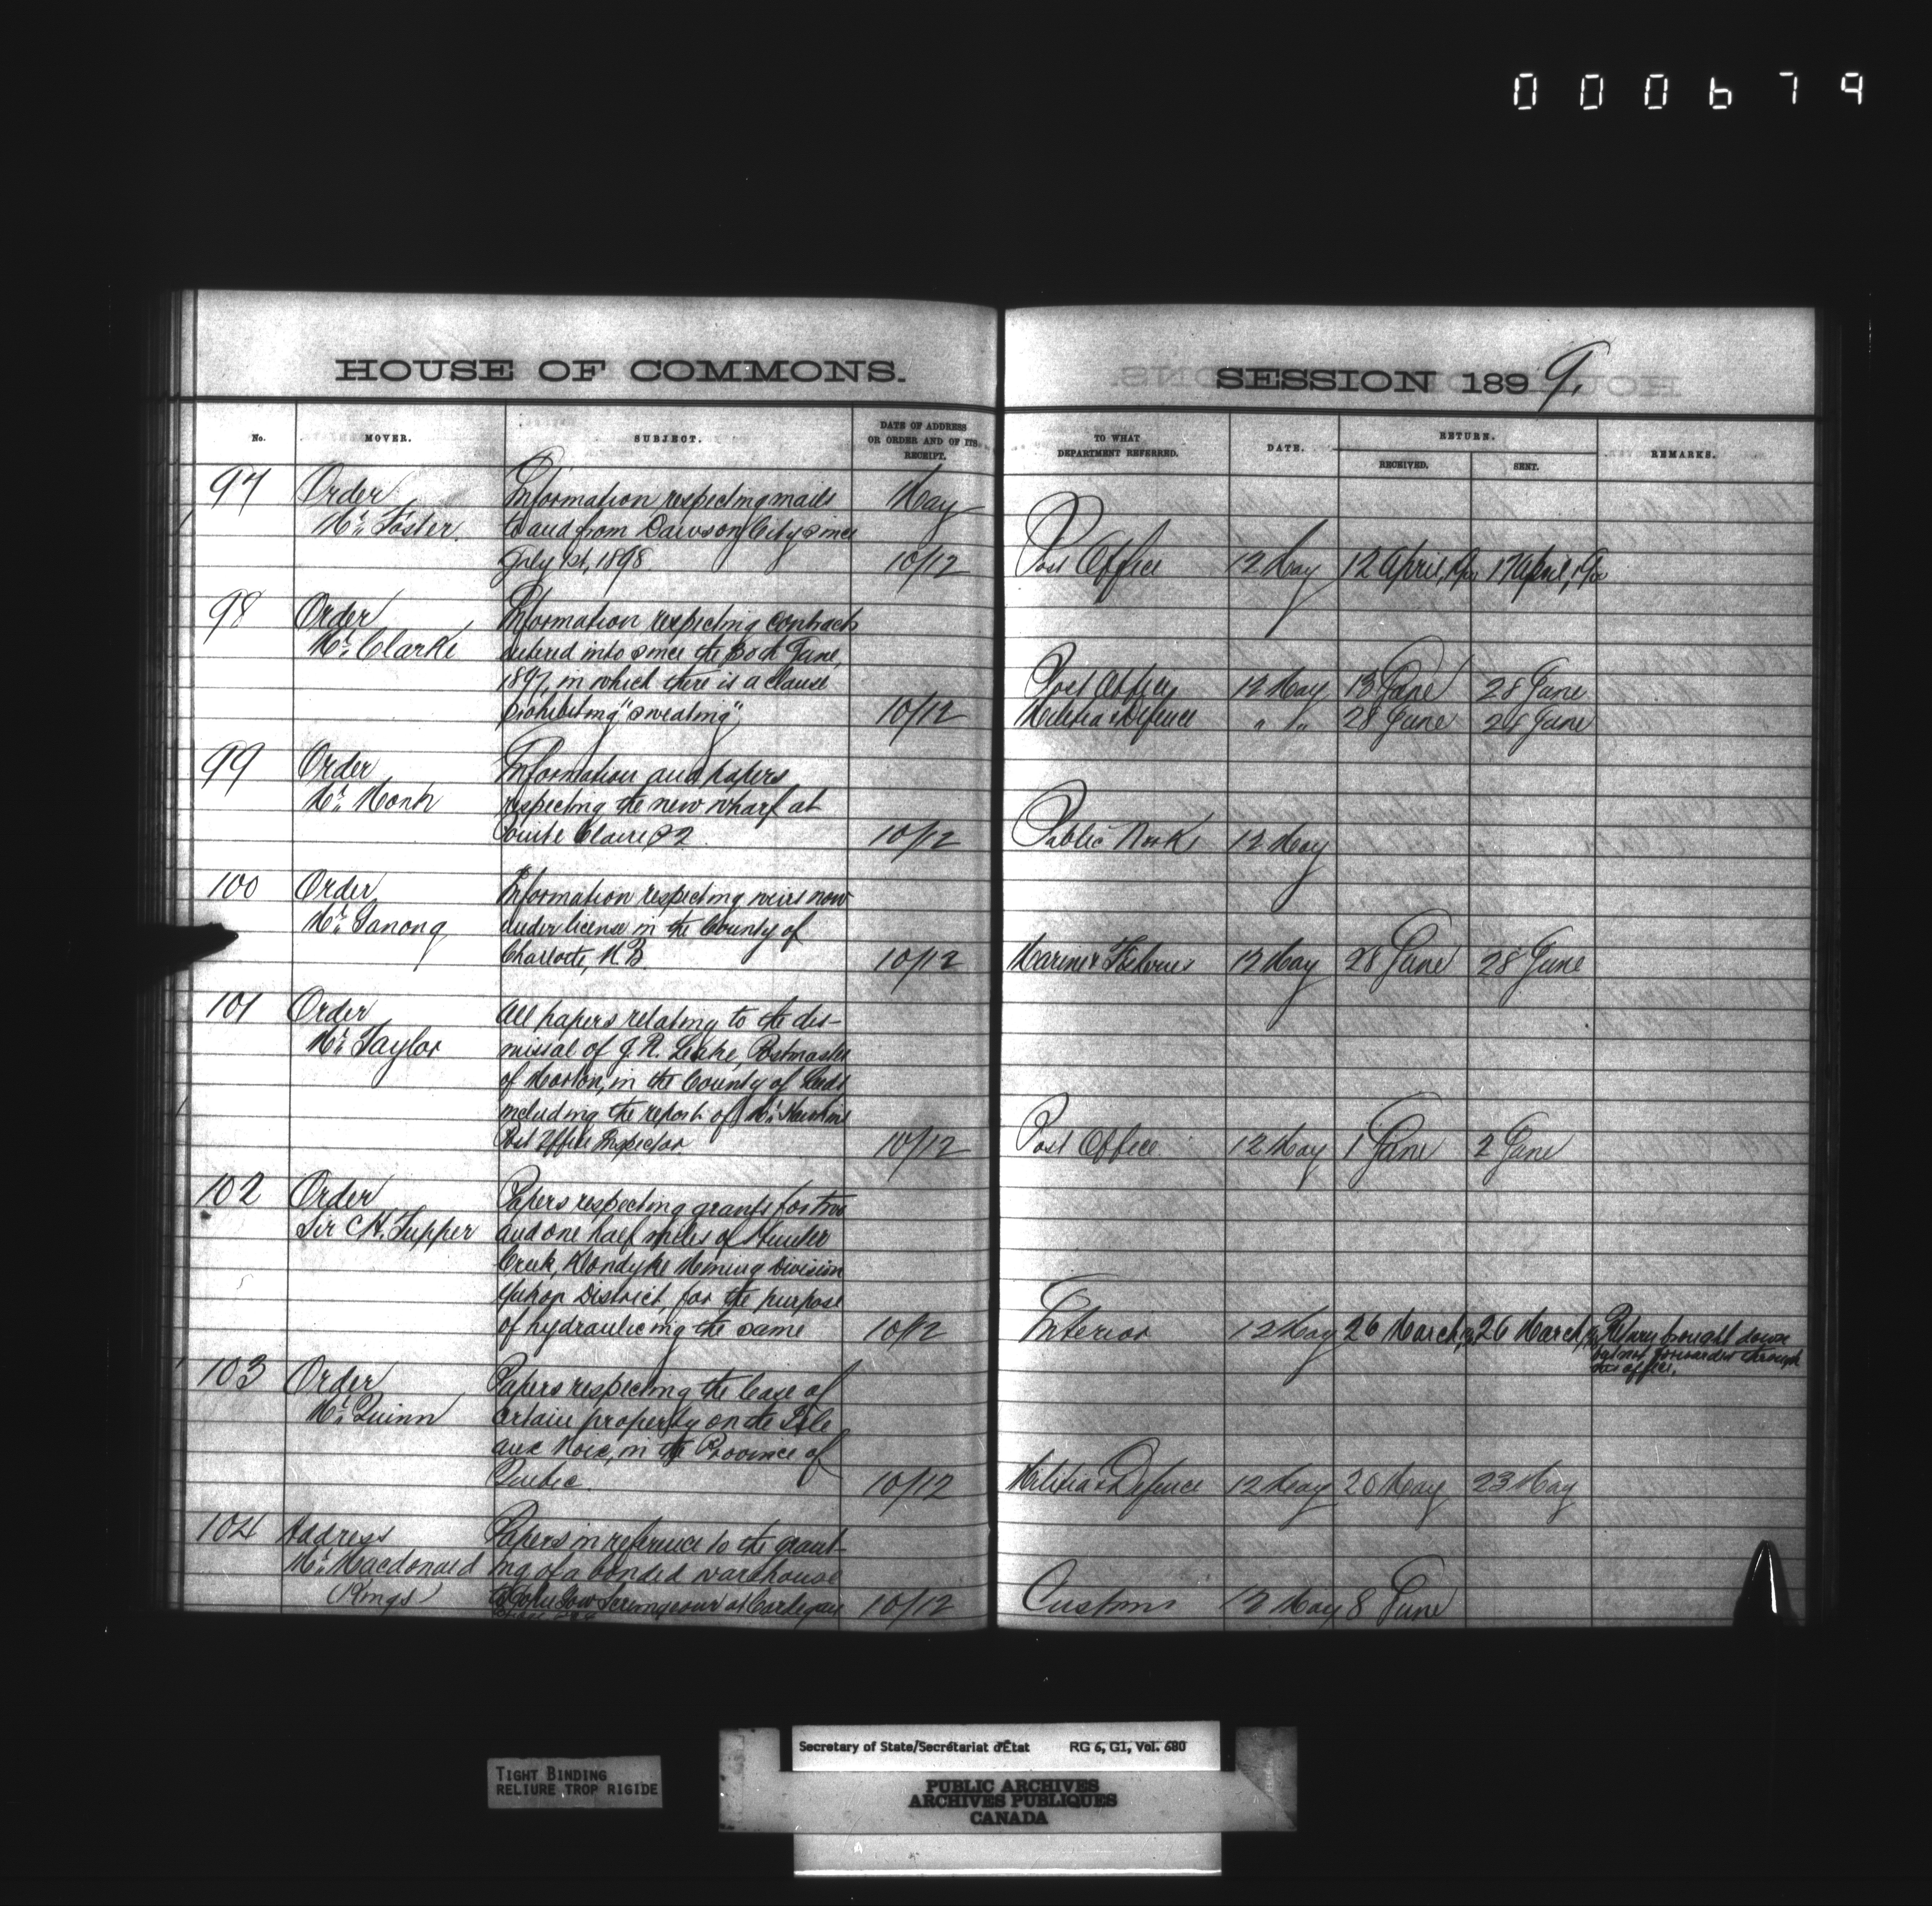 000679
HOUSE OF COMMONS.
SESSION 1899.
No.
MOVER.
SUBJECT.
DATE OF ADDRESS
OR ORDER AND OF ITS
RECEIPT.
TO WHAT
DEPARTMENT REFERRED.
DATE.
RETURN.
RECEIVED.
SENT.
REMARKS.
97 Order Information respecting mails May
Mr. Foster. to and from Dawson City since
July 1st, 1898 10/12 Post Office 12 May 12 April, 1900 17 April, 1900
98 Order Information respecting contracts
Mr. Clarke entered into since the 30th June,
1897, in which there is a clause Post Office 12 May 13 June 28 June
prohibiting "sweating" 10/12 Militia & Defence " " 28 June 28 June
99 Order Information and papers
Mr. Monk respecting the new wharf at
Pointe Claire P2 10/12 Public Work 12 May
100 Order Information respecting weirs now
Mr. Ganong under license in the County of
Charlotte, N.B. 10/12 Marine & Fisheries 12 May 28 June 28 June
101 Order All papers relating to the dis-
Mr. Taylor missal of J.R. Leake, Postmaster
of Morton, in the County of Leeds
including the report of Mr. Hawkins
Post Office Inspector 10/12 Post Office 12 May 1 June 2 June
102 Order Papers respecting grants for two
Sir C.H. Tupper and one half miles of Hunker
Creek, Klondyke Mining Division
Yukon District, for the purpose
of hydraulicing the same 10/12 Interior 12 May 26 March, 26 March, Return brought down
but not forwarded through
this office.
103 Order Papers respecting the lease of
Mr. Quinn certain property on the Isle
aux Noix, in the Province of
Quebec. 10/12 Militia & Defence 12 May 20 May 23 May
104 Address Papers in reference to the grant-
Mr. Macdonald ing of a bonded warehouse
(Kings) to John Gow Scrimgeour at Cardigan 10/12 Customs 12 May 8 June
TIGHT BINDING
RELIURE TROP RIGIDE
Secretary of State/Secrétariat d'État RG 6, G1, Vol. 680
PUBLIC ARCHIVES
ARCHIVES PUBLIQUES
CANADA